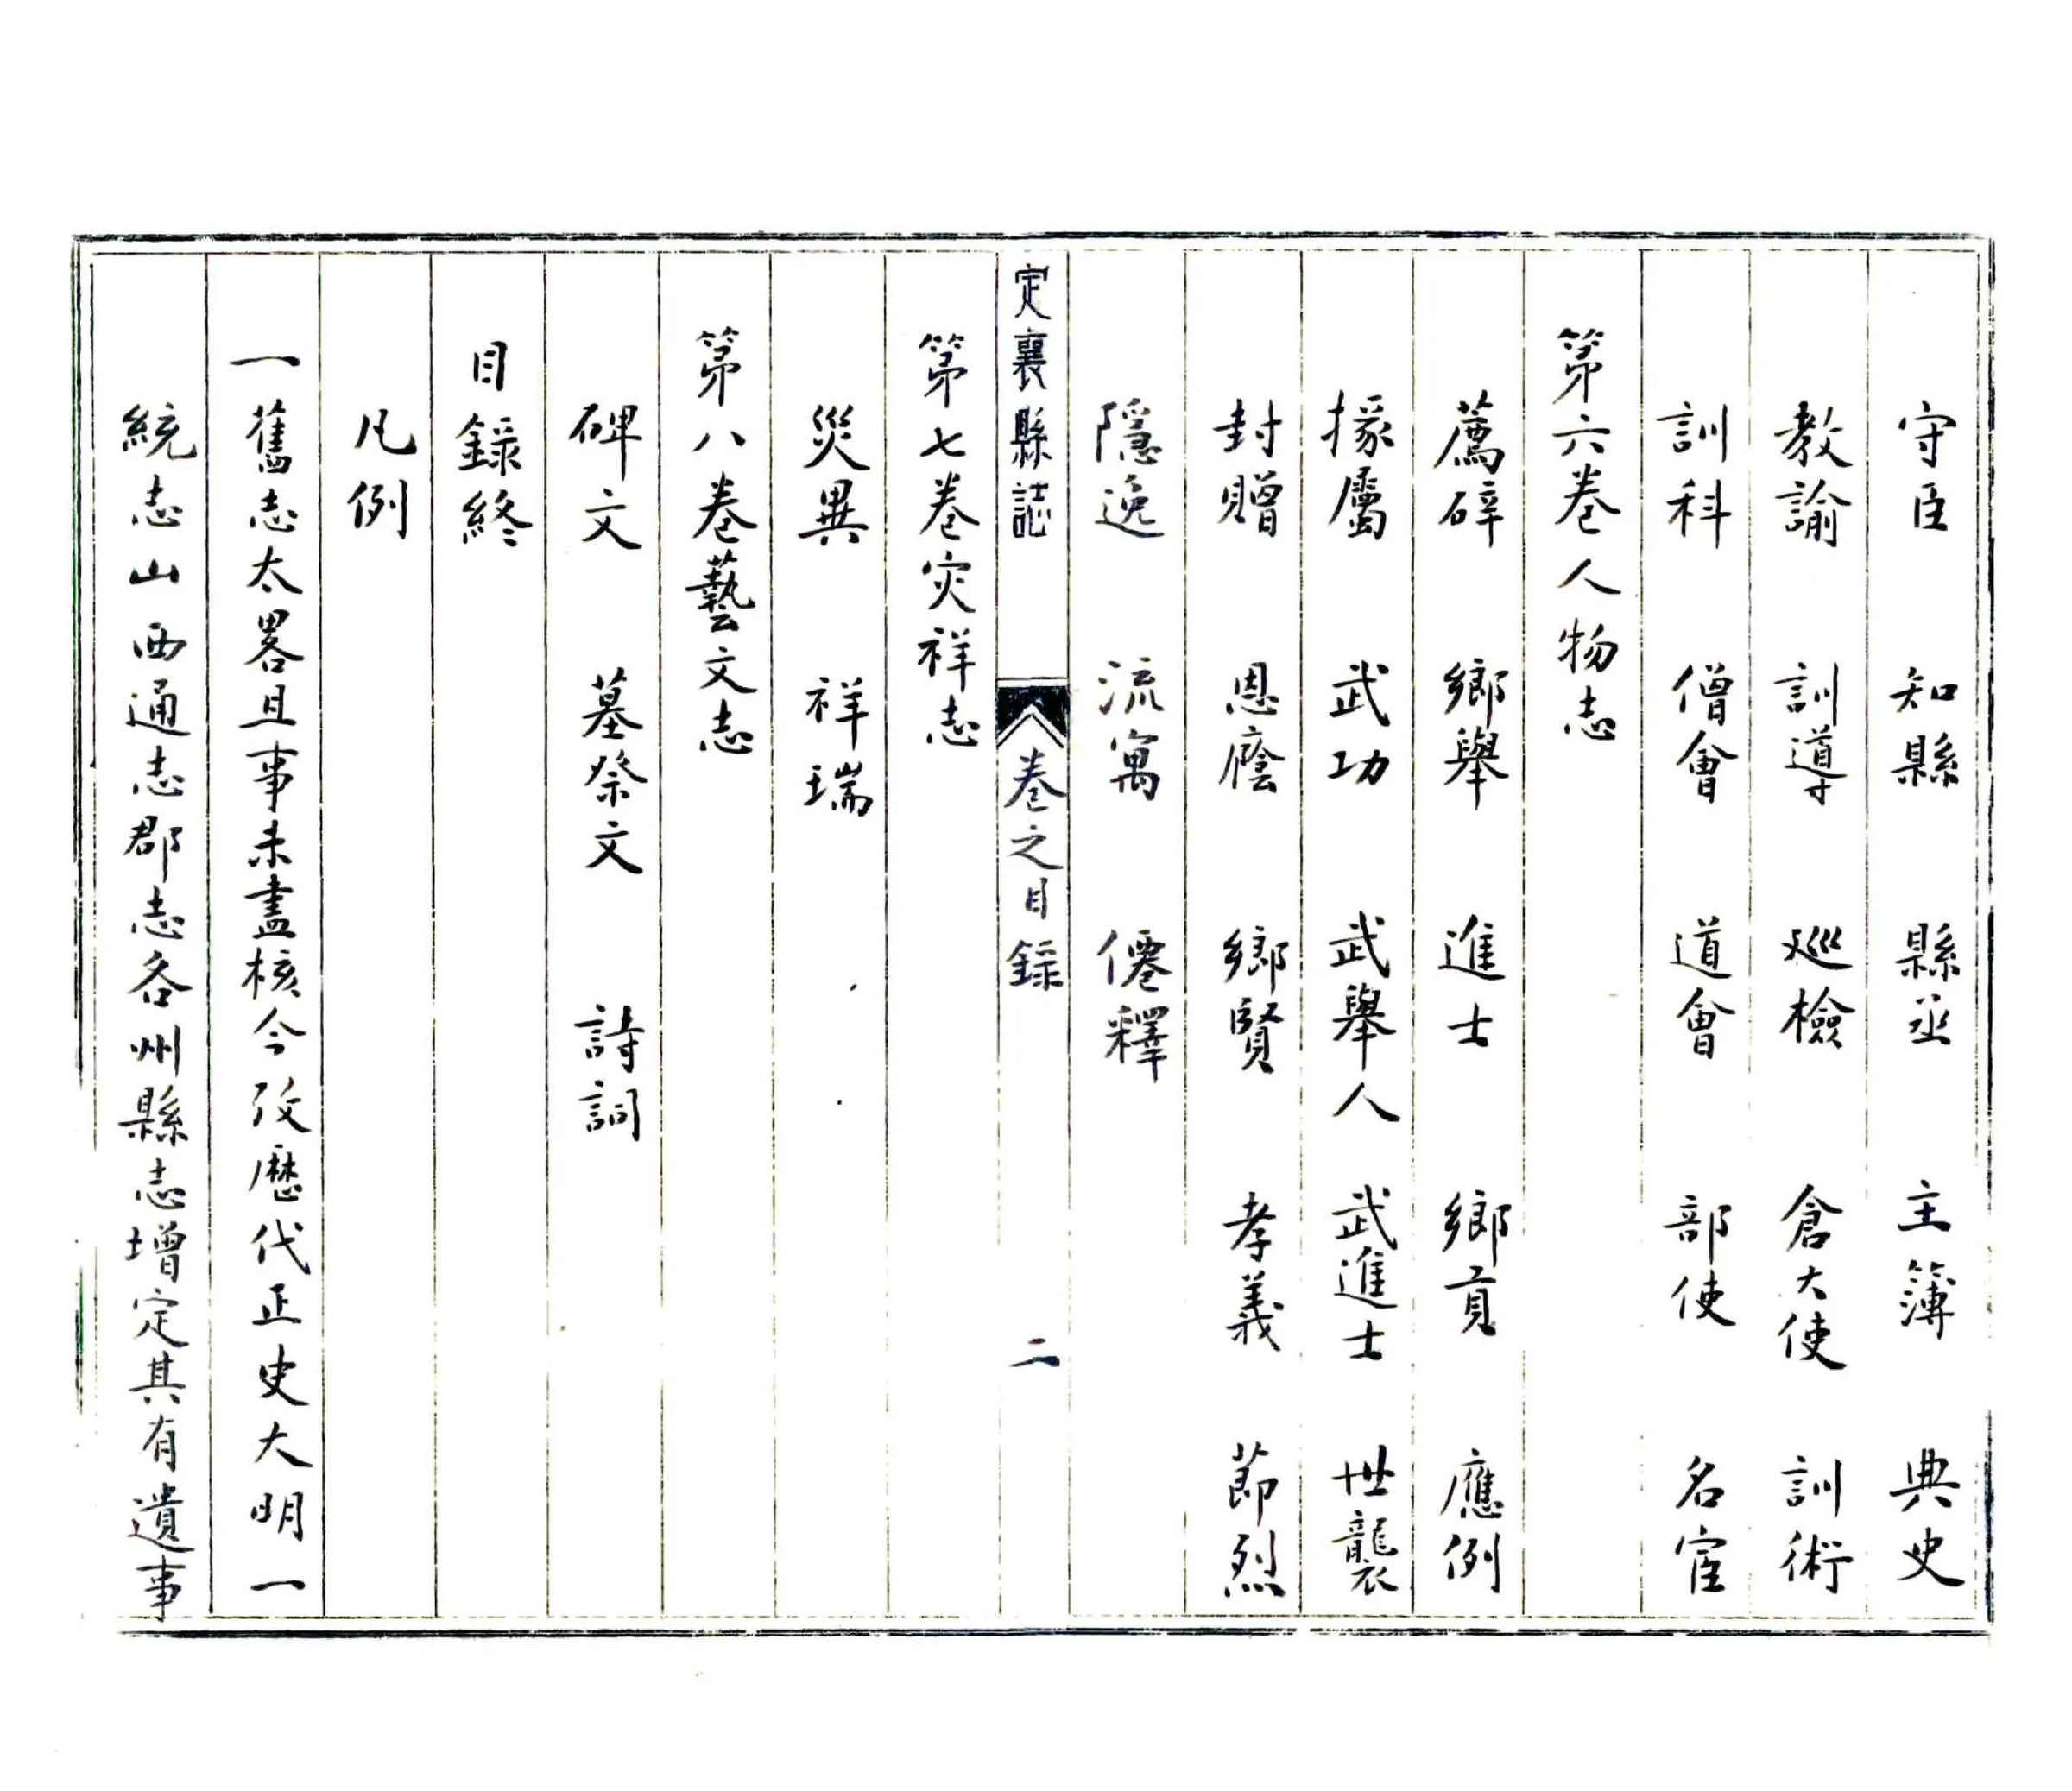 守臣 知縣 縣丞 主簿 典史
教諭 訓導 巡檢 倉大使 訓術
訓科 僧會 道會 部使 名宦
第六卷人物志
薦辟 鄉舉 進士 鄉貢 應例
掾屬 武功 武舉人 武進士 世襲
封贈 恩廕 鄉賢 孝義 節烈
隱逸 流寓 僊釋
定襄縣誌 卷之目錄 二
第七卷灾祥志
災異 祥瑞
第八卷藝文志
碑文 墓祭文 詩詞
目錄終
凡例
一舊志太畧且事未盡核今攷歷代正史大明一
統志山西通志郡志各州縣志增定其有遺事